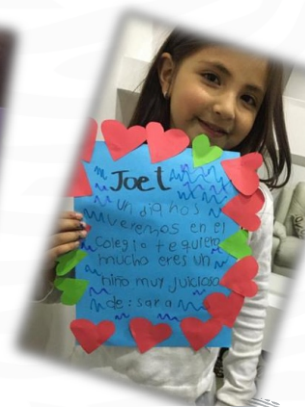 Joet
un dia nos
veremos en el
colegio te quiero
mucho eres un
niño muy juicioso
de: sara